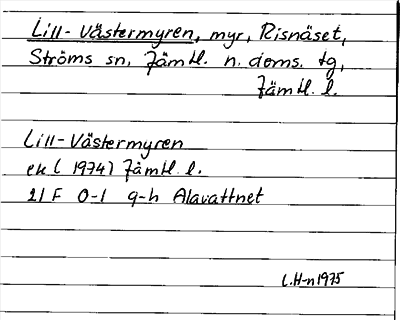 Lill-Västermyren, myr, Risnäset,
Ströms sn, Jämtl. n. doms. tg,
Jämtl. l.
Lill-Västermyren
ek (1974) Jämtl. l.
21F 0-1 g-h Alavattnet
L.H-n 1975